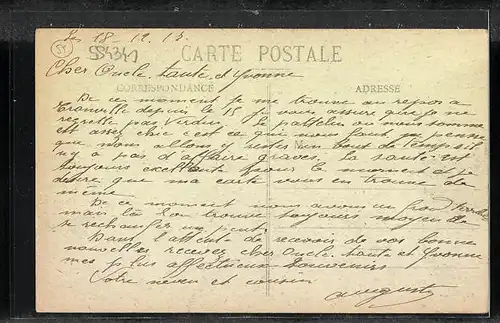 Le 18-12-15.
51
554341
CARTE POSTALE
Cher Oncle, tante et Yvonne
CORRESPONDANCE
ADRESSE
De ce moment je me trouve au repos a
Tranville depuis le 15 je vous assure que je ne
regrette pas Verdun. Le patelin ou nous sommes
est assez chic c'est ce qui nous faut je pense
que nous allons y rester un bout de temps s'il
n'y a pas d'affaire graves. La santé est
toujours excellente pour le moment et je
desire que ma carte vous en trouve de
même
De ce moment nous avons un froid terrible
mais là l'on trouve toujours moyen de
se rechanger un peut.
Dans l'attente de recevoir de vos bonne
nouvelles recevez cher Oncle, tante et Yvonne
mes plus affectueux souvenirs
Votre neveu et cousin
Auguste